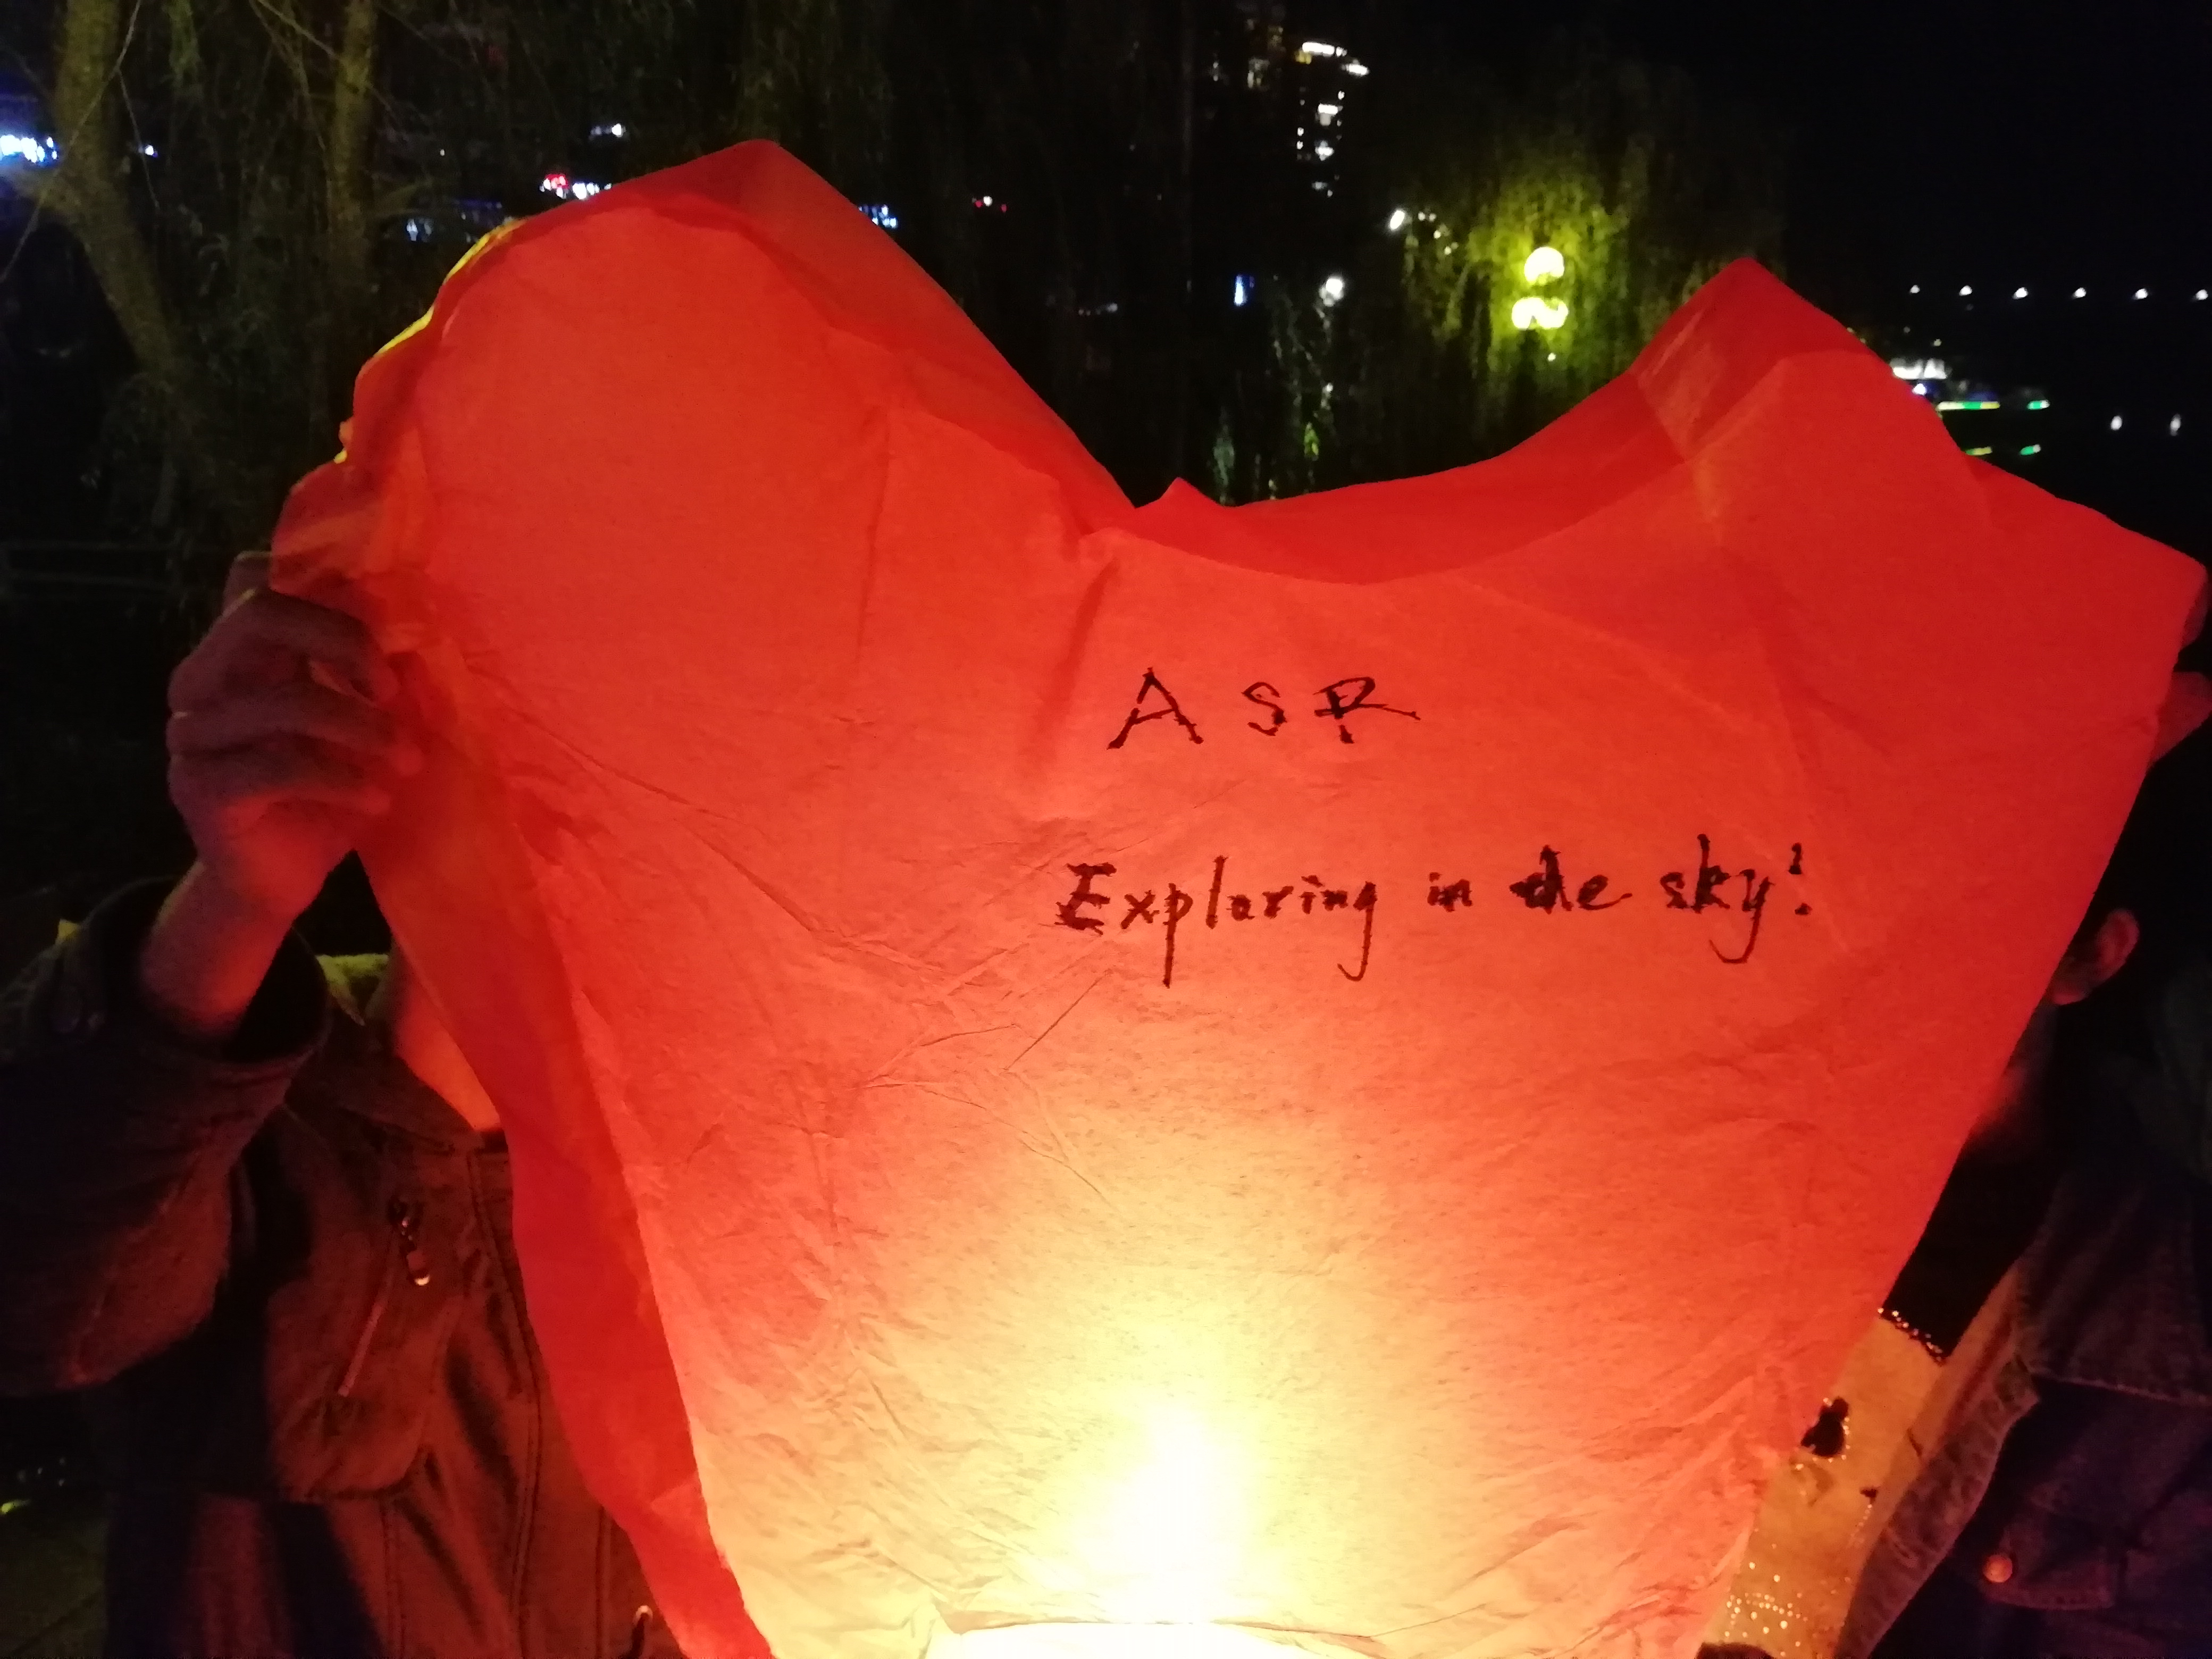 ASR
Exploring in the sky!